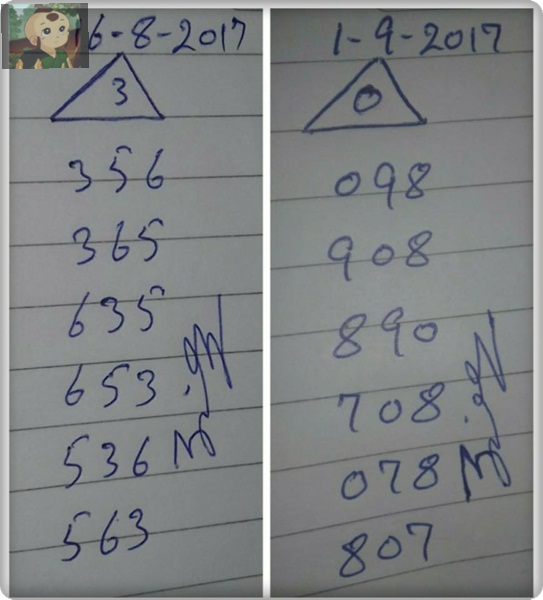 16-8-2017
3
356
365
635
653
536
563
1-9-2017
0
098
908
890
708
078
807